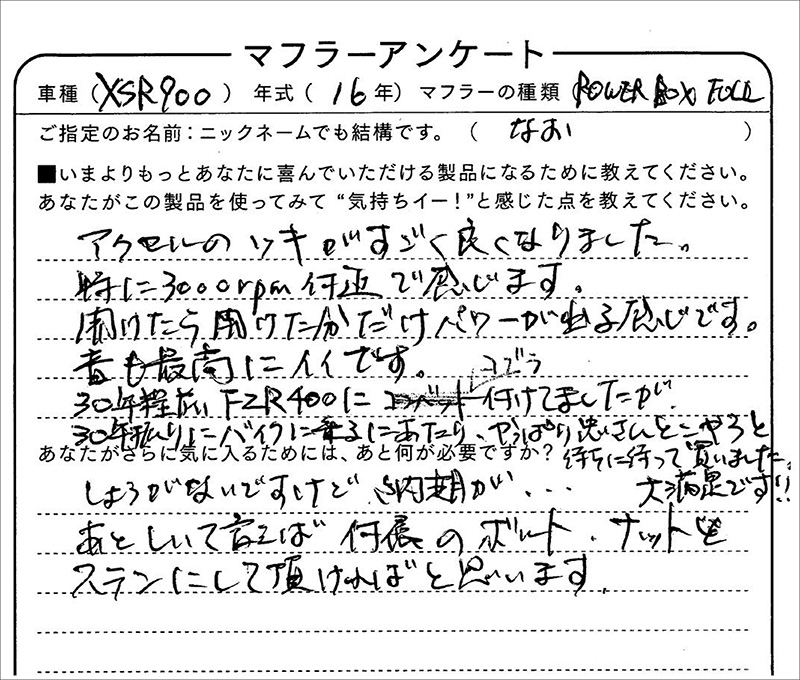 マフラーアンケート
車種（XSR900）年式（16年）マフラーの種類 POWER BOX FULL
ご指定のお名前：ニックネームでも結構です。（なお）
■いまよりもっとあなたに喜んでいただける製品になるために教えてください。
あなたがこの製品を使ってみて“気持ちイー！”と感じた点を教えてください。
アクセルのツキがすごく良くなりました。
特に3000rpm付近で感じます。
開けたら開けた分だけパワーが出る感じです。
音も最高にイイです。
30年程前 FZR400に コブラ 付けてましたが
30年振りにバイクに乗るにあたり、やっぱり さんとこやろと
待ちに待って買いました。
大満足です!!
あなたがさらに気に入るためには、あと何が必要ですか？
しょうがないですけど 納期が...
あとしいて言えば 付属のボルト・ナットを
ステンにして頂ければと思います。